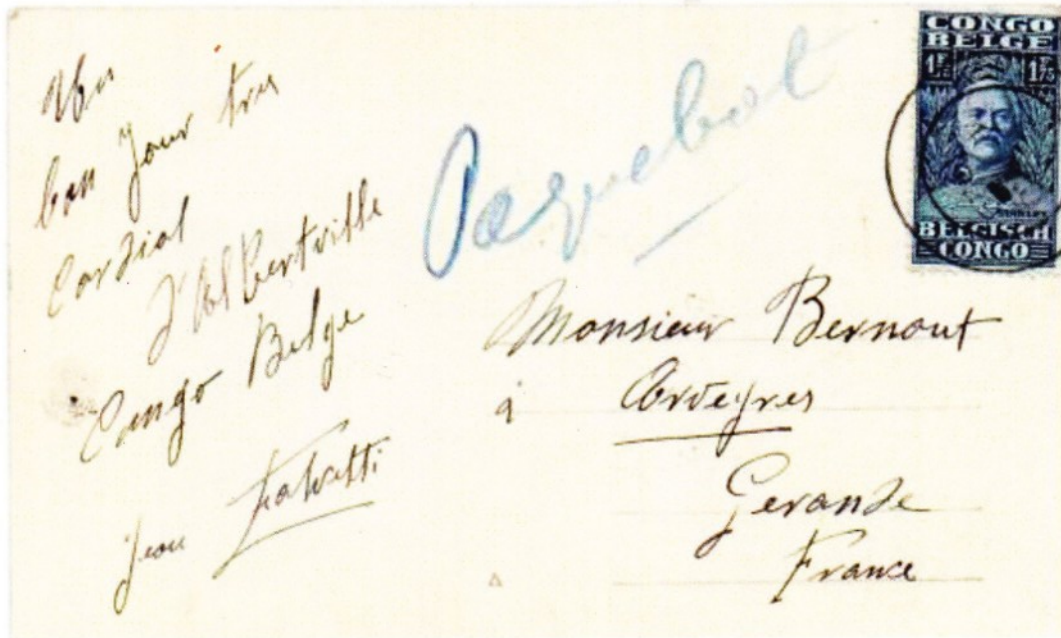 Un
bon jour tres
Cordial
d'Albertville
Congo Belge
Jean
Paquebot
CONGO
BELGE
1F75
BELGISCH
CONGO
Monsieur Bernout
à Arveyres
Gerande
France